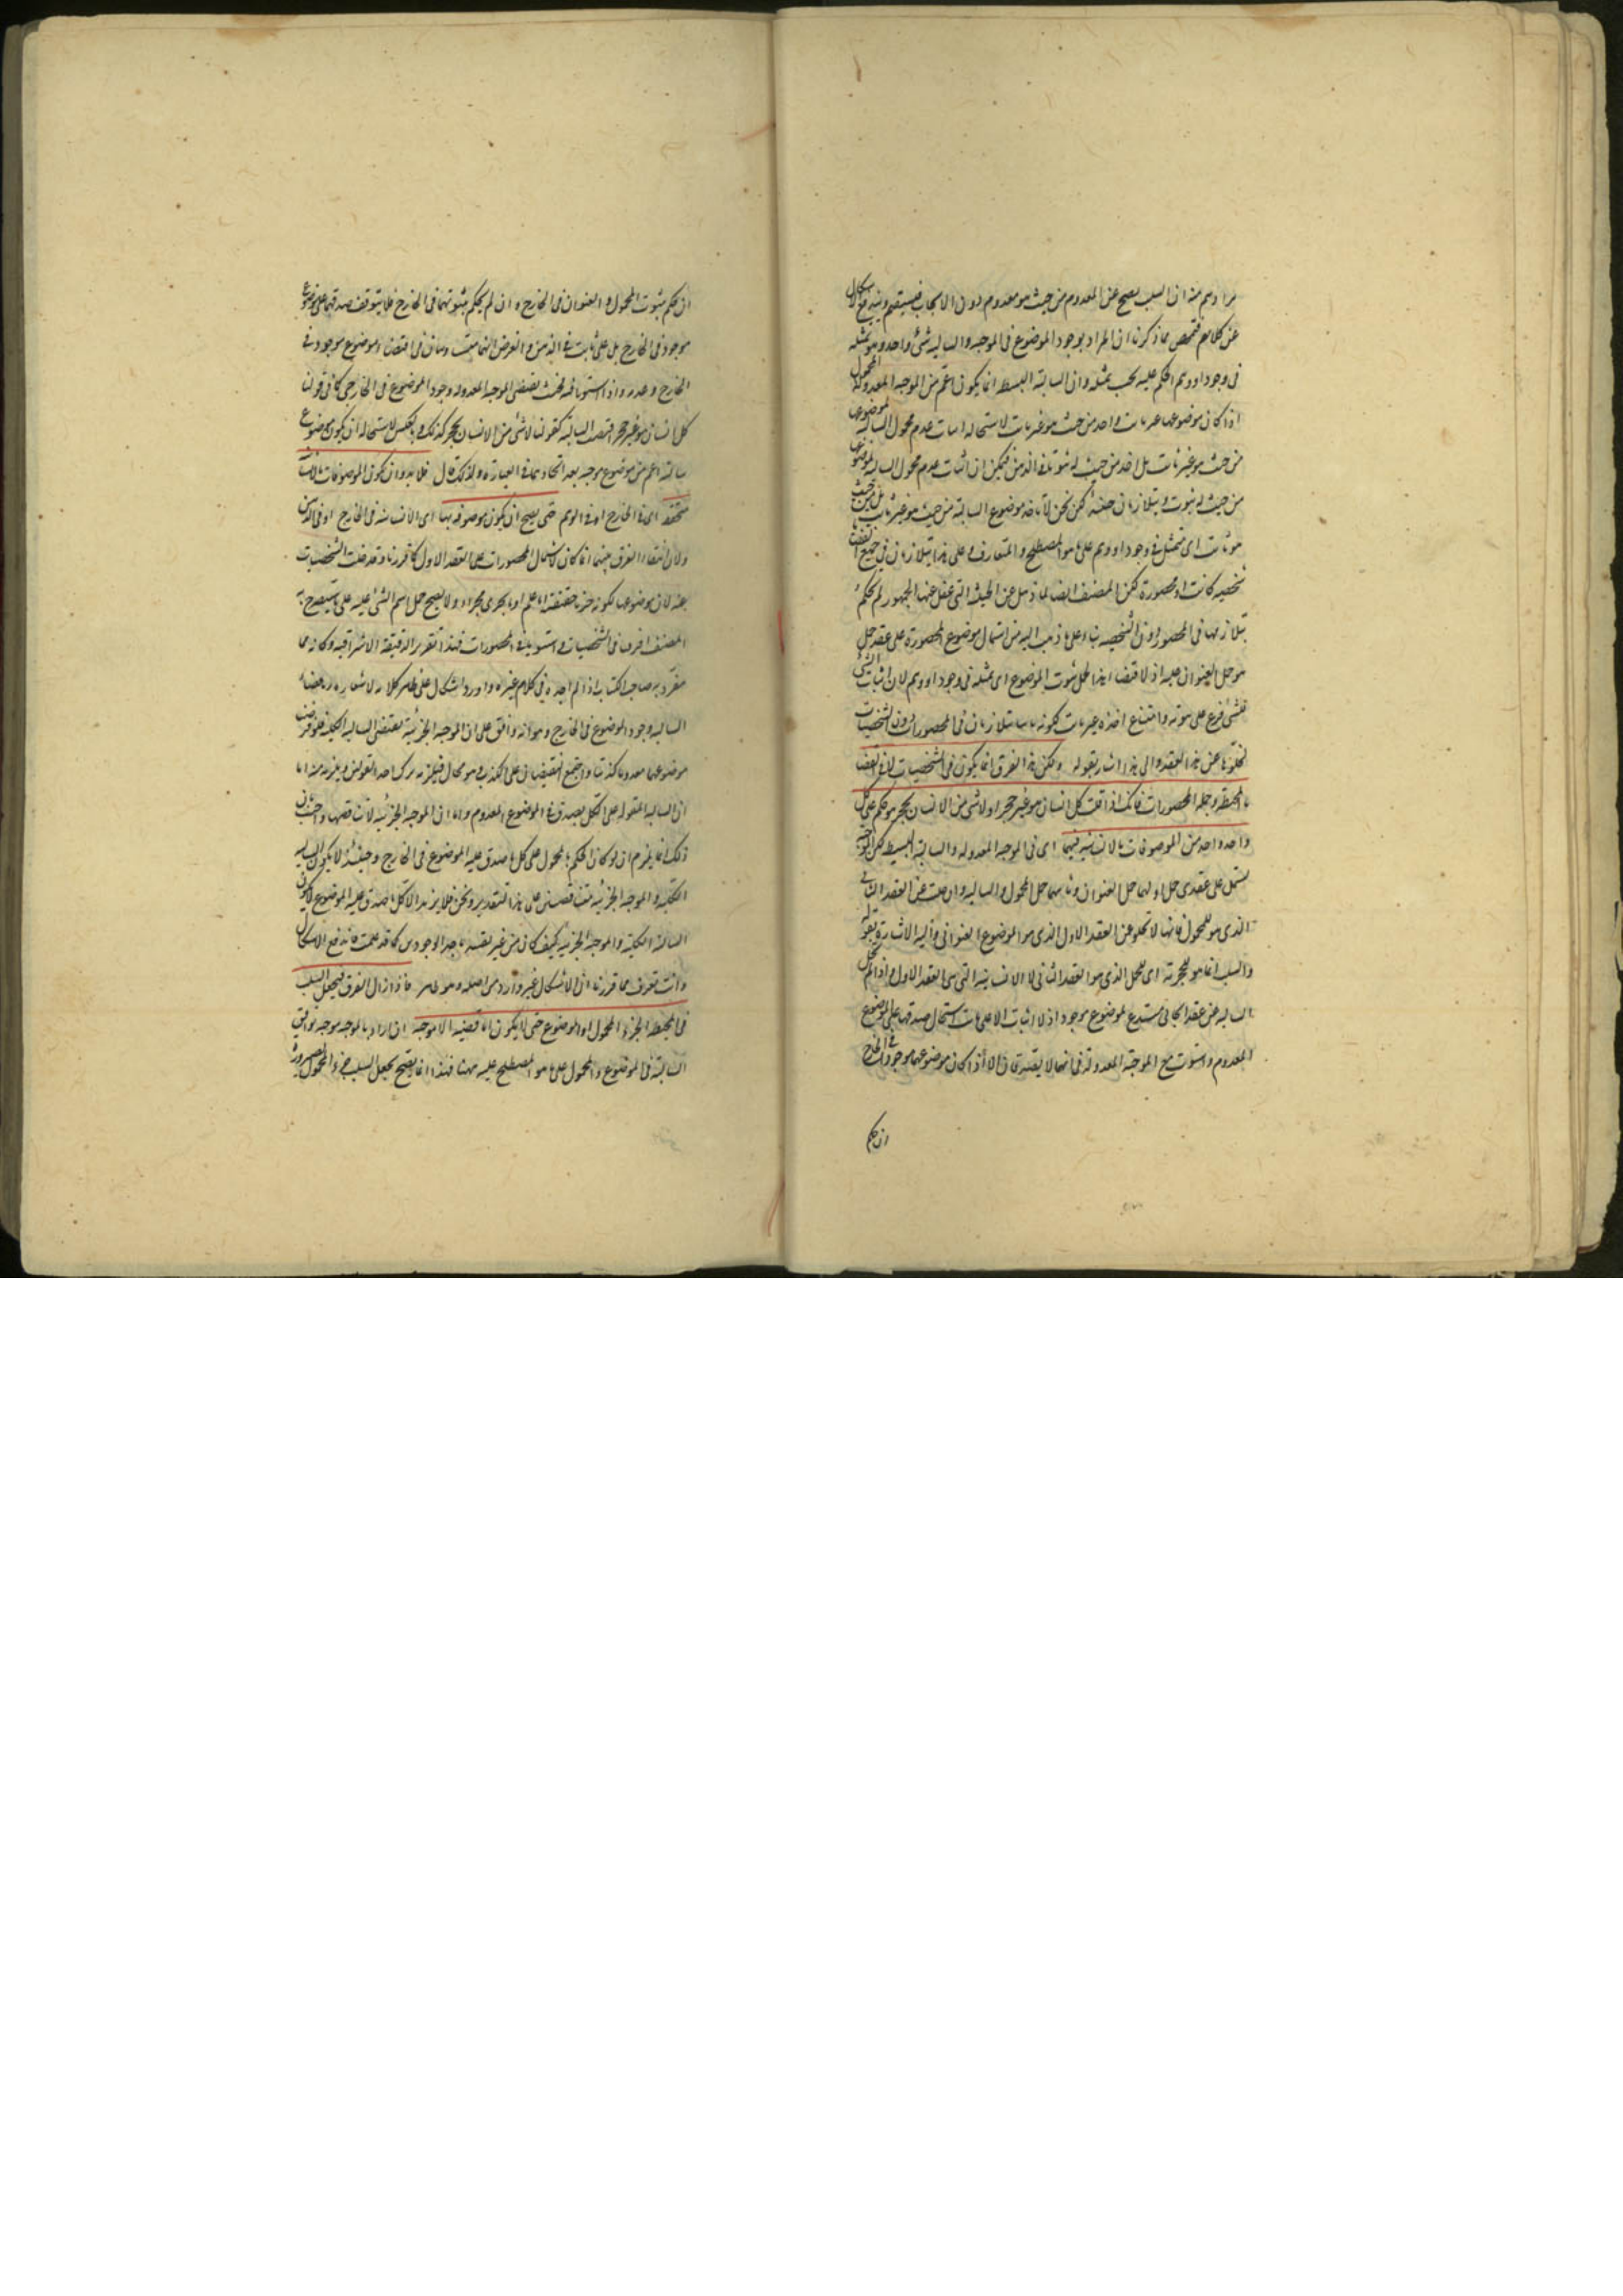 مرادهم منه ان السلب يصح عن المعدوم من حيث هو معدوم دون الايجاب فيستقيم ويندفع الاشكال
عن كلامهم فتلخص مما ذكرنا ان المراد بوجود الموضوع فى الموجبه والسالبه شئ واحد وهو تمثله
فى وجود او وهم الحكم عليه بحسب تمثله وان السالبة البسيطه انما يكون اعم من الموجبه المعدولة المحمول
اذا كان موضوعها غير ثابت واخذ من حيث هو غير ثابت لاستحاله اثبات عدم محمول السالبه لموضوع
من حيث هو غير ثابت بل اخذ من حيث له ثبوت فى الذهن فيمكن ان اثبات عدم محمول السالبه لموضوع
من حيث له ثبوت ويتلازمان حينئذ لكن نحن لا ناخذ موضوع السالبة من حيث هو غير ثابت بل من حيث
هو ثابت اى متمثل فى وجود او وهم على ما هو المصطلح والمتعارف وعلى هذا يتلازمان فى جميع القضايا
شخصيه كانت او محصورة لكن المصنف ايضا لما ذهل عن الحيثية التى غفل عنها الجمهور لم يحكم
بتلازمهما فى المحصورة دون الشخصيه بناء على ما ذهب اليه من اشتمال موضوع المحصورة على عقد حمل
هو حمل العنوان عليه اذ لاقتضاء هذا الحمل ثبوت الموضوع اى تمثله فى وجود او وهم لان اثبات الشئ
للشئ فرع على ثبوته وامتناع اخذه غير ثابت لكونه ثابتا يتلازمان فى المحصورات دون الشخصيات
لخلوها عن هذا العقد والى هذا اشار بقوله ولكن هذا الفرق انما يكون فى الشخصيات لا فى القضايا
المحيطة وجملة المحصورات فانك اذا قلت كل انسان هو غير حجر او لا شئ من الانسان بحجر هو حكم على كل
واحد واحد من الموصوفات بالانسانيه فيهما اى فى الموجبه المعدوله والسالبة البسيطه لكن الموجبة
يشتمل على عقدى حمل اولهما حمل العنوان وثانيهما حمل المحمول والسالبه وان خلت عن العقد الثانى
الذى هو للمحمول فانها لا تخلو عن العقد الاول الذى هو الموضوع العنوانى واليه الاشارة بقوله
والسلب انما هو للحجرية اى للحمل الذى هو العقد الثانى لا الانسانية التى هى العقد الاول واذا لم تخل
السالبه عن عقد ايجابى مستدع لموضوع موجود اذ لا اثبات الا على ثابت استحال صدقها على الموضوع
المعدوم واستوت مع الموجبة المعدولة فى انهما لا يصدقان الا اذا كان موضوعهما موجودا فى الخارج
ان حكم
ان حكم بثبوت المحمول والعنوان فى الخارج وان لم يحكم بثبوتهما فى الخارج فلا يتوقف صدقهما على موضوع
موجود فى الخارج بل على ثابت فى الذهن والغرض انهما متساويتان فى اقتضاء موضوع موجود فى
الخارج وعدمه واذا استويا فحيث يقتضى الموجبه المعدوله وجود الموضوع فى الخارجى كما فى قولنا
كل انسان هو غير حجر اقتضت السالبة كقولنا لا شئ من الانسان بحجر كذلك وبالعكس لاستحاله ان يكون موضوع
سالبة اعم من موضوع موجبه بعد اتحادهما فى العبارة ولذلك قال فلا بد وان تكون الموصوفات بالانسانية
متحققة اى فى الخارج او فى الوهم حتى يصح ان يكون موصوفة بها اى الانسانيه فى الخارج او فى الذهن
ولان انتفاء الفرق بينهما انما كان لاشتمال المحصورات على العقد الاول كما قررنا وقد خلت الشخصيات
عنه لان موضوعها لكونه جزئيا حقيقيا اما علم او ما يجرى مجراه ولا يصح حمل اسم الشئ عليه على ما سيصرح به
المصنف افرقا فى الشخصيات واستويا فى المحصورات فهذا تقرير الدقيقة الاشراقيه وكانه مما
تفرد به صاحب الكتاب اذ لم اجده فى كلام غيره واورد اشكال على ظاهر كلامه لاشعاره باقتضاء
السالبه وجود الموضوع فى الخارج وهو انه وافق على ان الموجبه الجزئية نقيض السالبه الكليه فلو فرض
موضوعهما معدوما كذبتا واجتمع النقيضان على الكذب وهو محال فيلزمه ترك احد القولين ويلزمه منه اما
ان السالبه المقوله على الكل يصدق مع الموضوع المعدوم واما ان الموجبه الجزئية لا تناقضها واجيب بان
ذلك انما يلزم ان لو كان الحكم بالمحمول على كل ما صدق عليه الموضوع فى الخارج وحينئذ لا يكون السالبه
الكليه والموجبه الجزئيه متناقضين على هذا التقدير ونحن فلا نريد الا كل ما صدق عليه الموضوع لا يكون
السالبة الكلية والموجبة الجزئيه كيف كان من غير تقييد باحد الوجودين كما قد علمت فاندفع الاشكال
وانت تعرف مما قررنا ان الاشكال غير وارد من اصله وهو ظاهر فاذا زال الفرق فيجعل السلب
فى المحيطة جزء المحمول او الموضوع حتى لا يكون لنا قضيه الا موجبه ان اراد بالموجبه موجبه توافق
السالبة فى الموضوع والمحمول على ما هو المصطلح عليه مهنا فهذا انما يصح بجعل السلب جزء المحمول لصيرورة